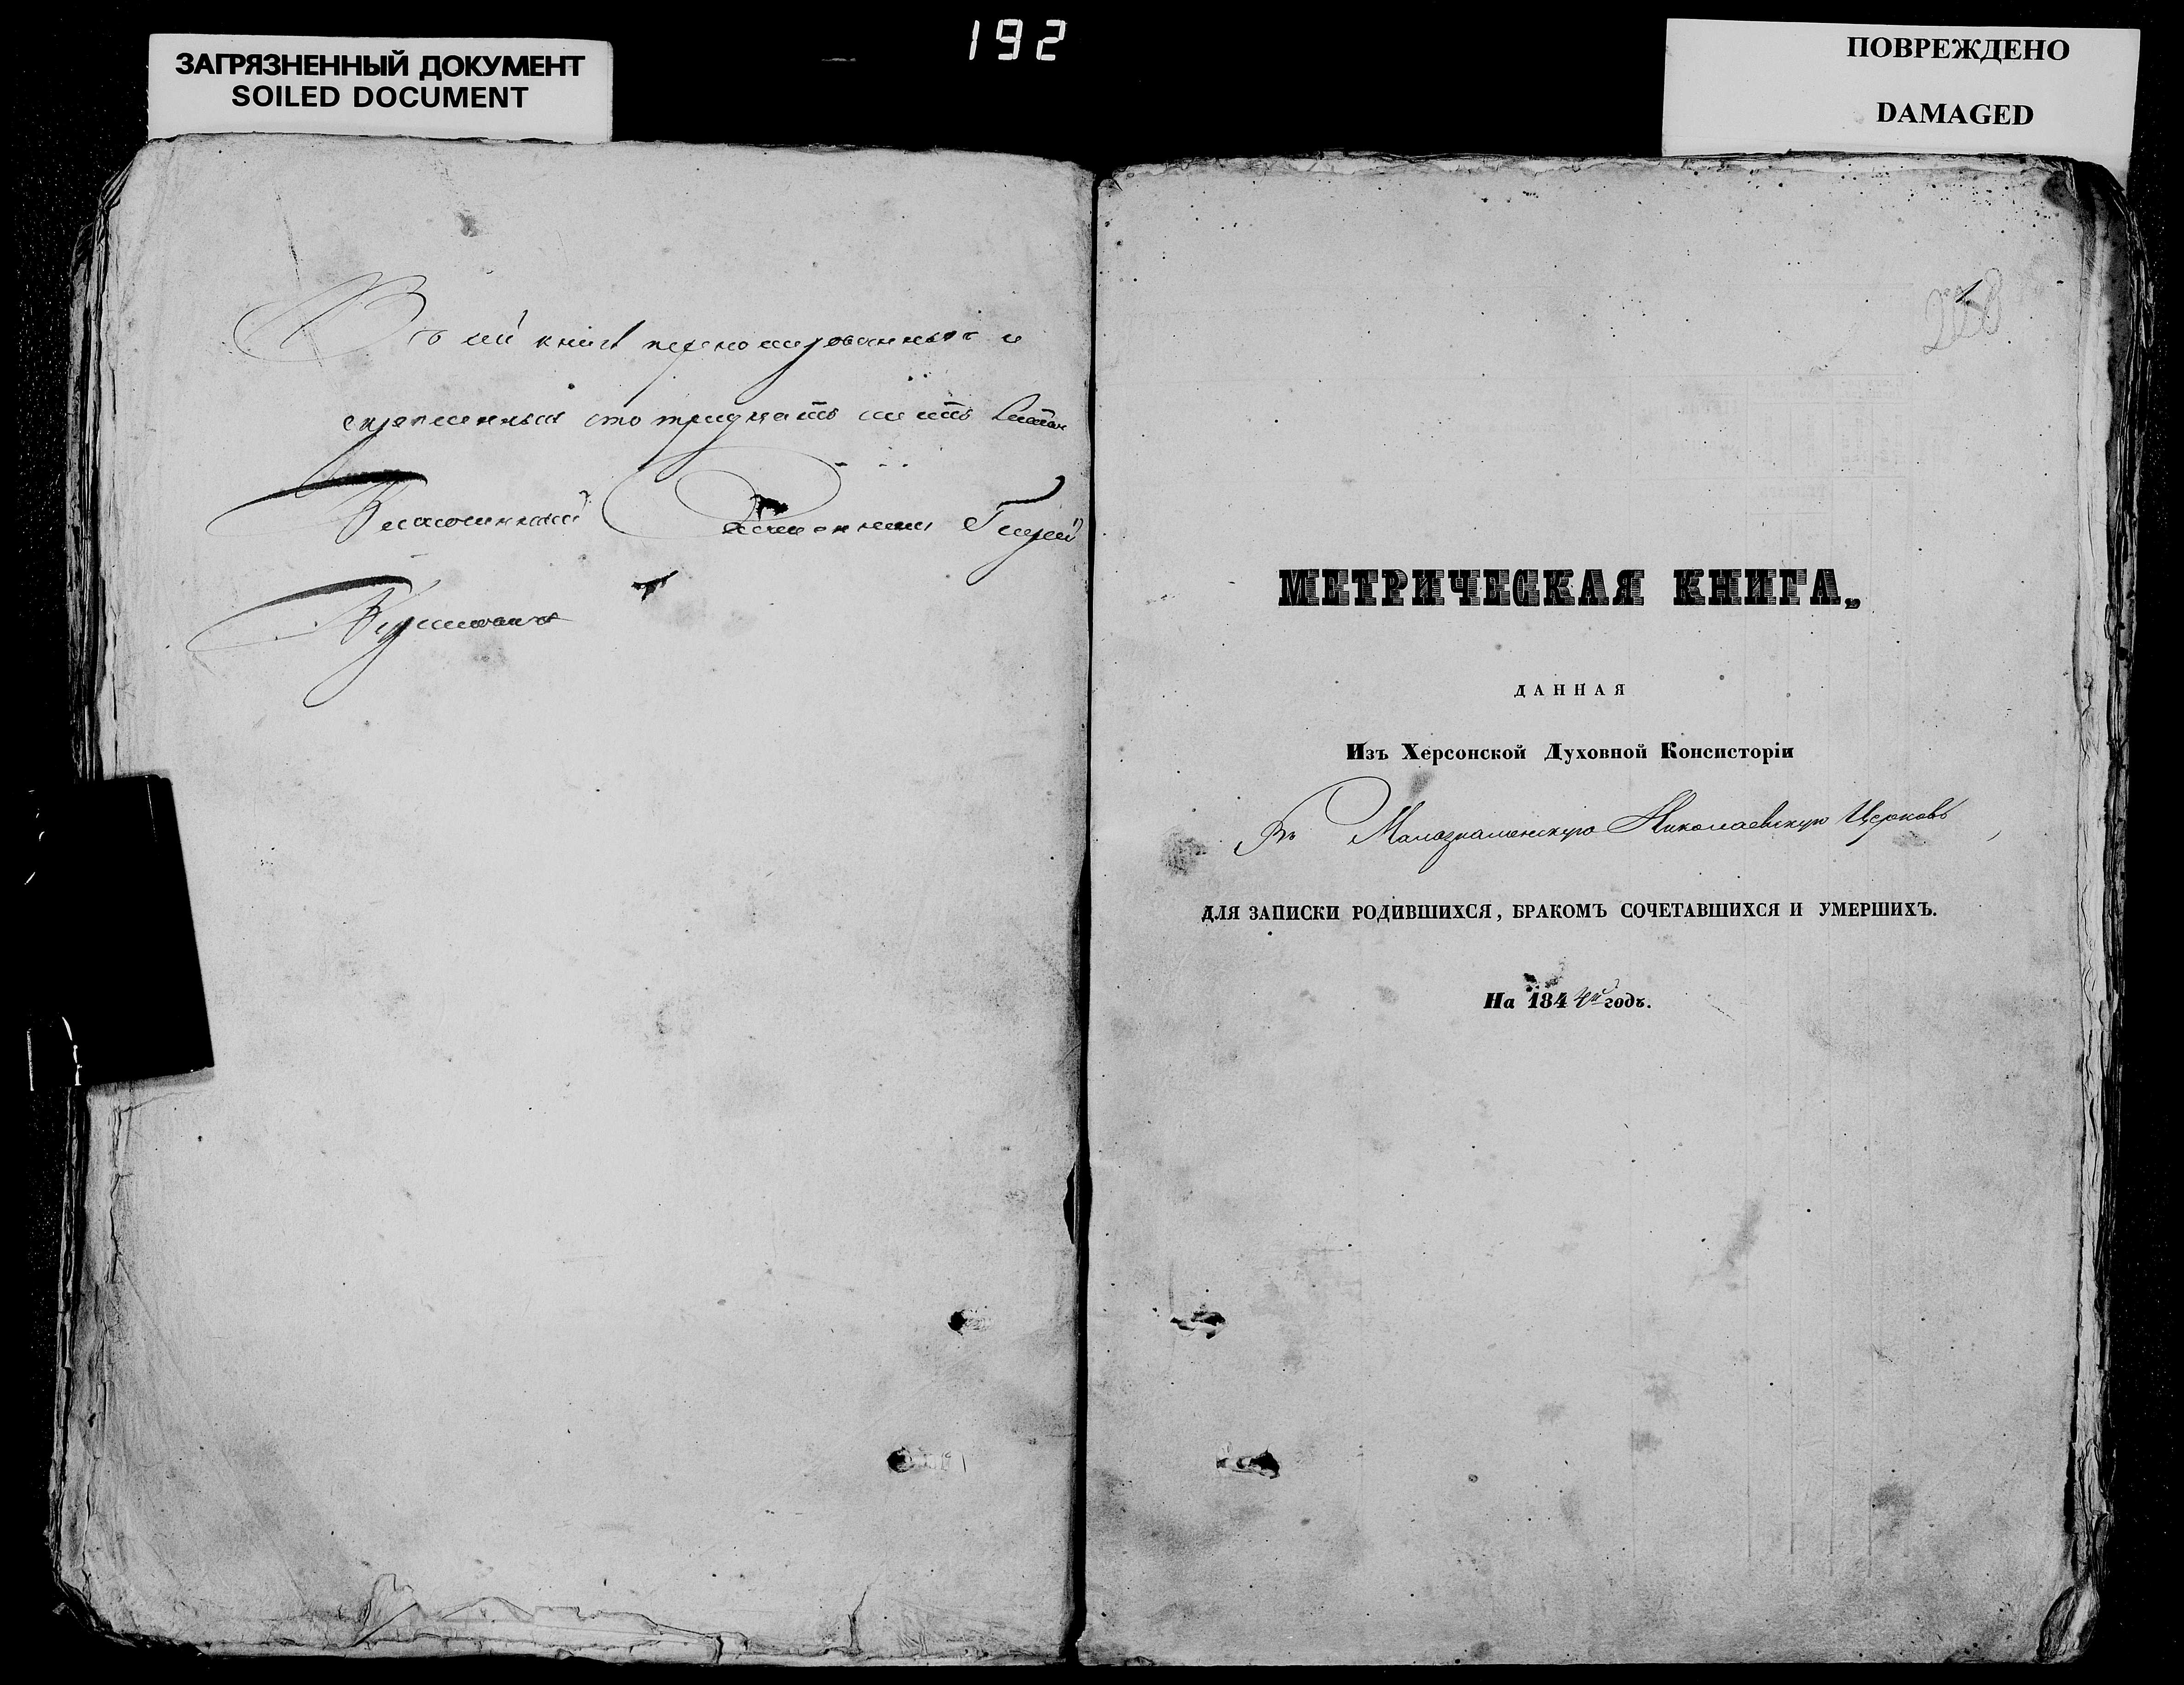 ЗАГРЯЗНЕННЫЙ ДОКУМЕНТ
SOILED DOCUMENT
192
ПОВРЕЖДЕНО
DAMAGED
Въ сей книгѣ перенумерованныхъ и
скрепленныхъ сто тридцать шесть листовъ
Благочинный
МЕТРИЧЕСКАЯ КНИГА,
ДАННАЯ
Изъ Херсонской Духовной Консисторіи
Въ Малознаменскую Николаевскую Церковь
ДЛЯ ЗАПИСКИ РОДИВШИХСЯ, БРАКОМЪ СОЧЕТАВШИХСЯ И УМЕРШИХЪ.
На 1844й годъ.